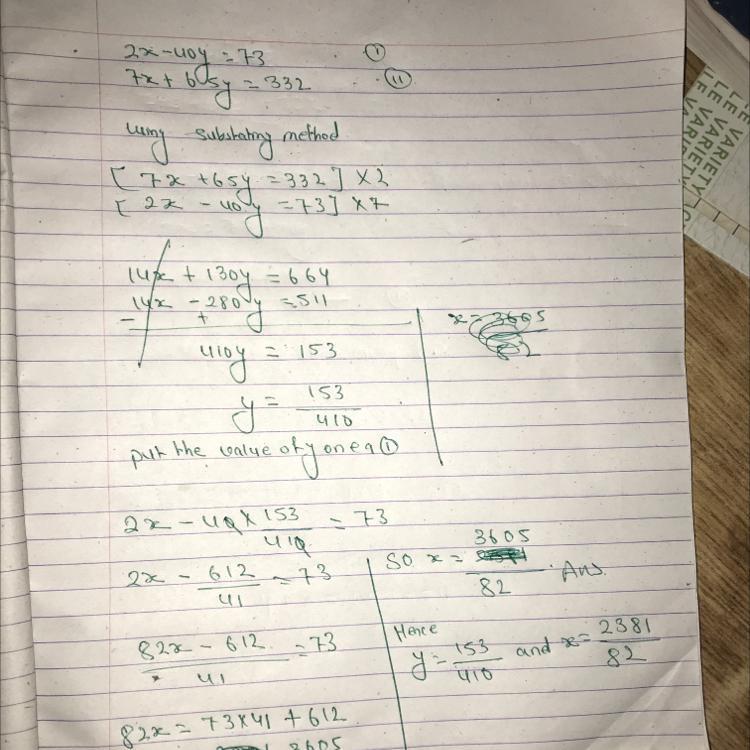 2x - 40y = 73 (i)
7x + 65y = 332 (ii)
using method
[ 7x + 65y = 332 ] × 2
[ 2x - 40y = 73 ] × 7
14x + 130y = 664
14x - 280y = 511
- +
410y = 153
y = 153/410
put the value of y on eq (i)
2x - 40 × 153/410 = 73
2x - 612/41 = 73
82x - 612/41 = 73
82x = 73×41 + 612
3605
x = 3605/82
So x = 3605/82 Ans.
Hence
y = 153/410 and x = 2381/82
LE VARIETY
LE VARIETY
LE VARIETY